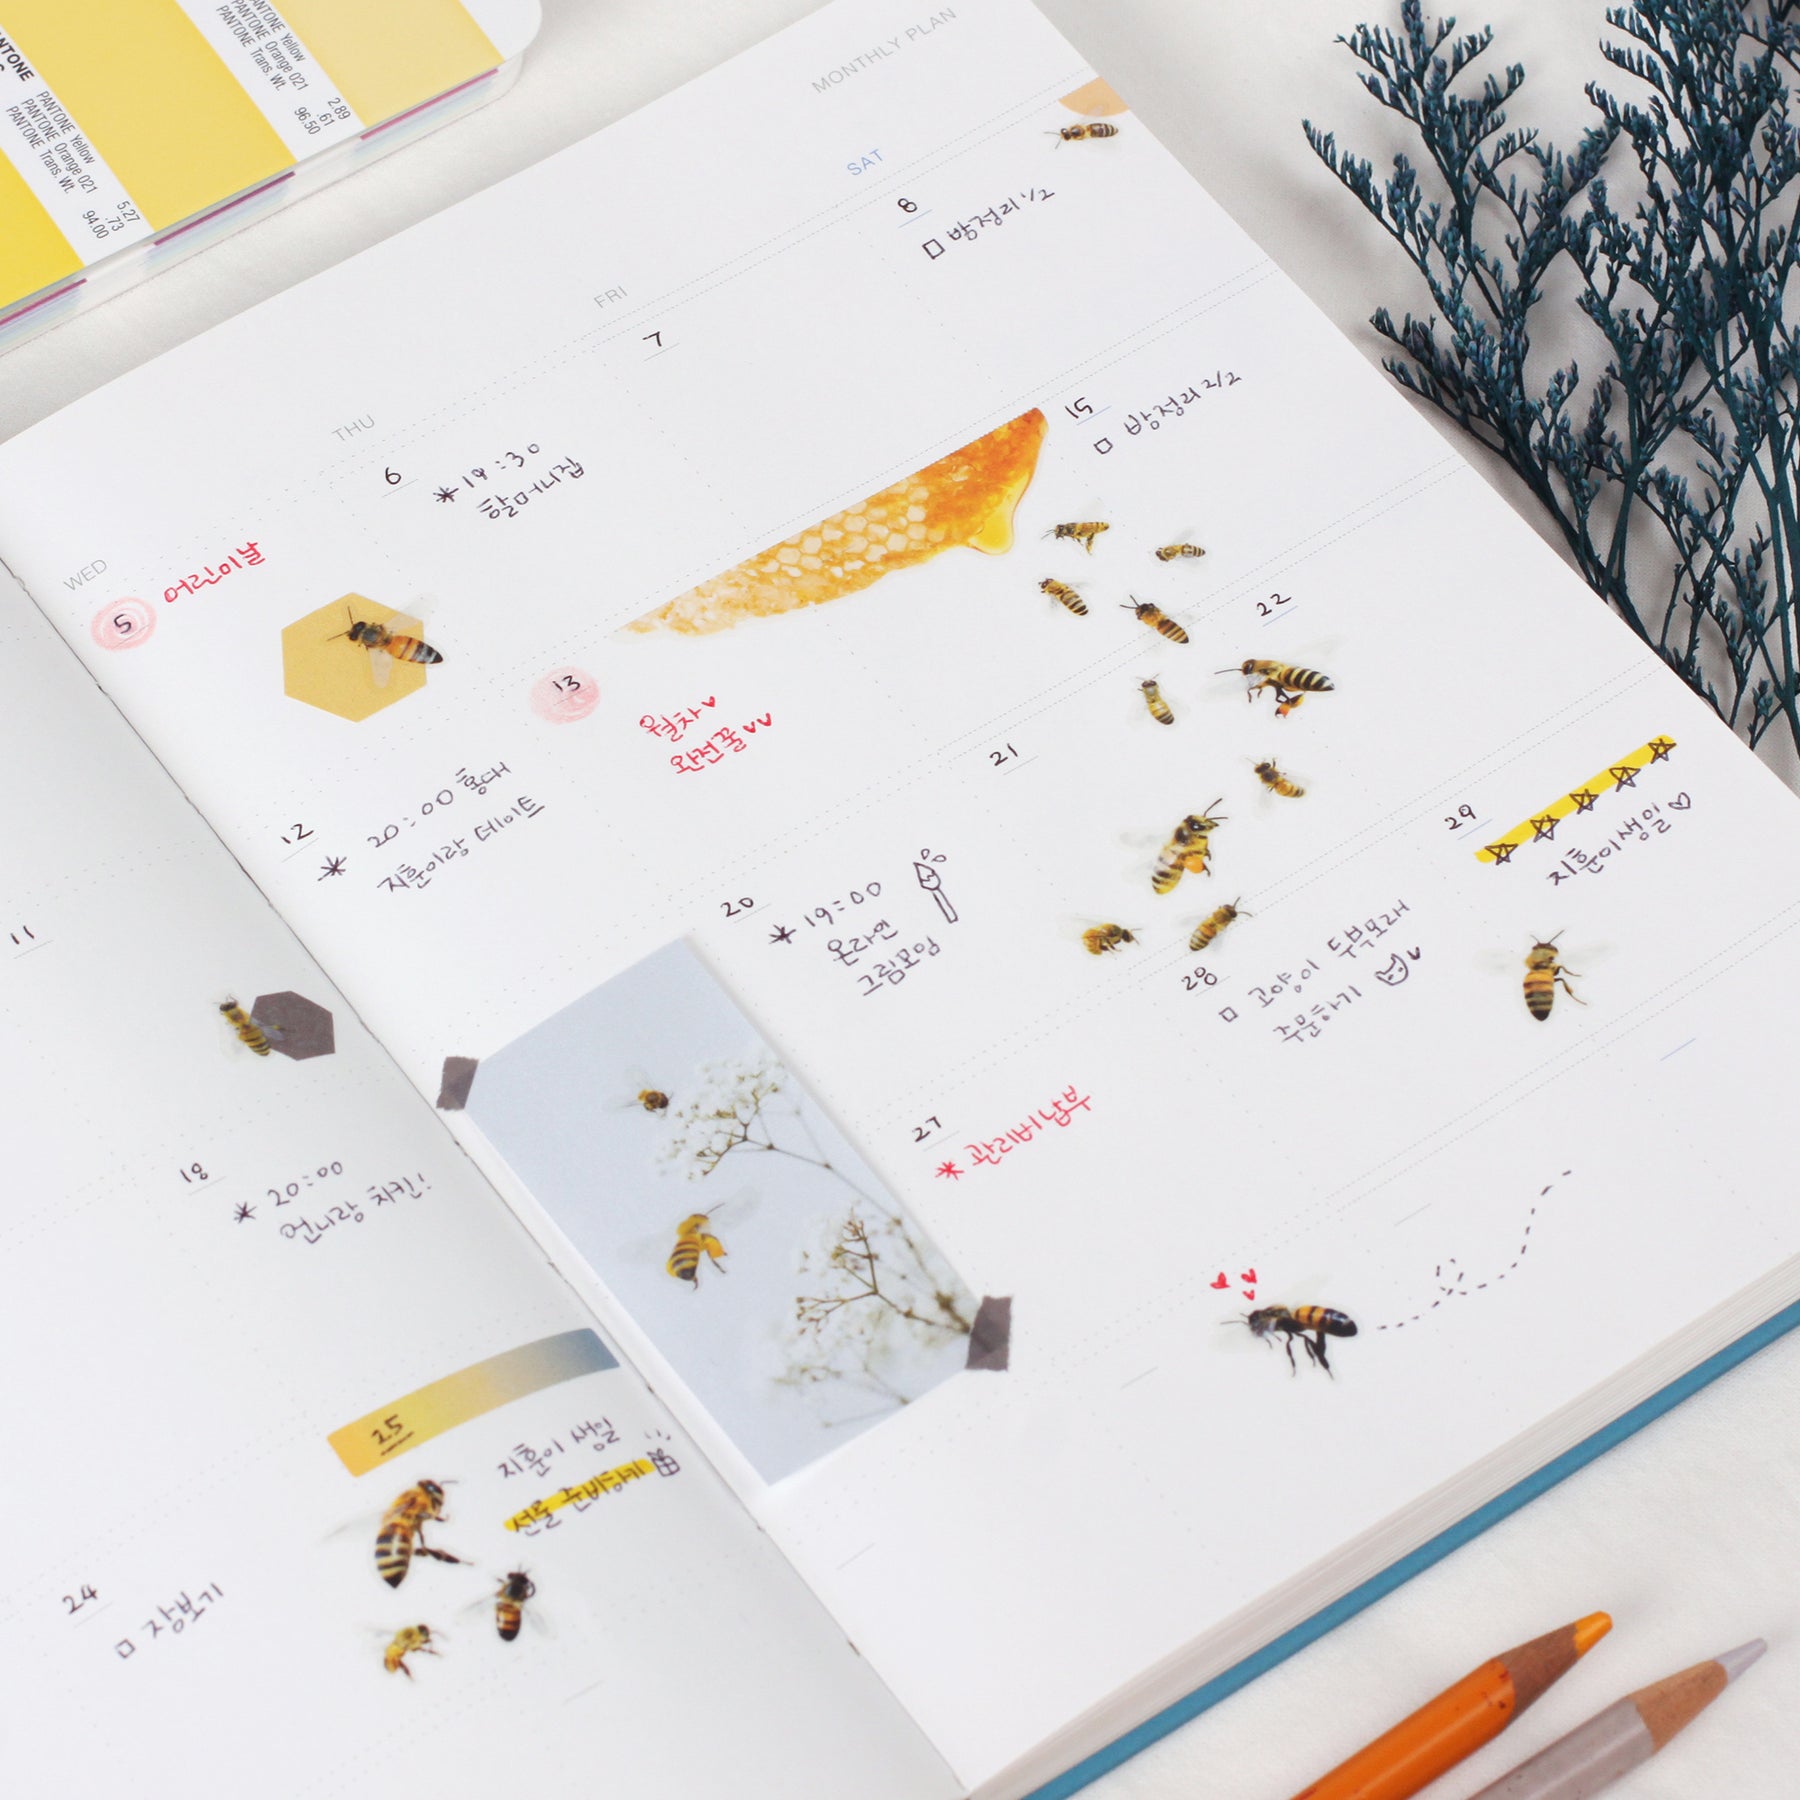 PANTONE
PANTONE Yellow
PANTONE Orange 021
PANTONE Trans. Wt.
5.27
.73
94.00
PANTONE Yellow
PANTONE Orange 021
PANTONE Trans. Wt.
2.89
.61
96.50
MONTHLY PLAN
WED
THU
FRI
SAT
5 어린이날
6
*19:30
할머니집
7
8
□ 방정리 1/2
11
12
* 20:00 홍대
지훈이랑 데이트
13
월차♥
완전꿀♥♥
15
□ 방정리 2/2
18
* 20:00
언니랑 치킨!
20
* 19:00
온라인
그림모임
21
22
24
□ 장보기
25
지훈이 생일
선물 준비하기
27
* 관리비 납부
28
□ 고양이 두부모래
주문하기
29
☆☆☆☆☆
지훈이 생일♡